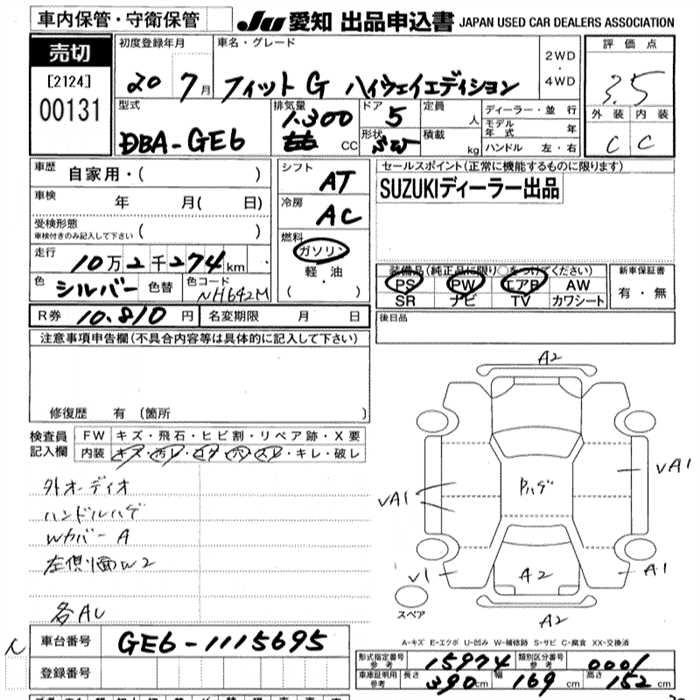 車内保管・守衛保管
JU 愛知 出品申込書 JAPAN USED CAR DEALERS ASSOCIATION
売切
[2124]
00131
初度登録年月
20 7月
車名・グレード
フィット G ハイウェイエディション
2WD・4WD
評価点
3.5
外装 内装
C C
型式
DBA-GE6
排気量
1.300
CC
ドア
5
形状
定員 人
積載 kg
ディーラー・並行
モデル年式 年
ハンドル 左・右
車歴 自家用・( )
車検 年 月( 日)
受検形態
車検付きのみ記入して下さい ( )
走行 10万2千274km
色 シルバー 色替 色コード NH642M
シフト AT
冷房 AC
燃料
ガソリン
軽油
( ・ )
セールスポイント(正常に機能するものに限ります)
SUZUKIディーラー出品
装備品(純正品に限り○をつけてください)
PS PW エアB AW
SR ナビ TV カワシート
新車保証書
有・無
R券 10.810円 名変期限 月 日
後日品
注意事項申告欄(不具合内容等は具体的に記入して下さい)
修復歴 有 (箇所 )
検査員記入欄
FW キズ・飛石・ヒビ割・リペア跡・X要
内装 キズ・汚レ・コゲ・穴・スレ・キレ・破レ
外オーディオ
ハンドルハゲ
Wカバー A
左側面W2
各AU
A2
VA1
VA1
Pハゲ
V1
A2
A1
スペア
A2
A-キズ E-エクボ U-凹み W-補修跡 S-サビ C-腐食 XX-交換済
車台番号 GE6-1115695
登録番号
形式指定番号 参考 15974 類別区分番号 参考 0001
車庫証明用 参考 長さ 390cm 幅 169cm 高さ 152cm